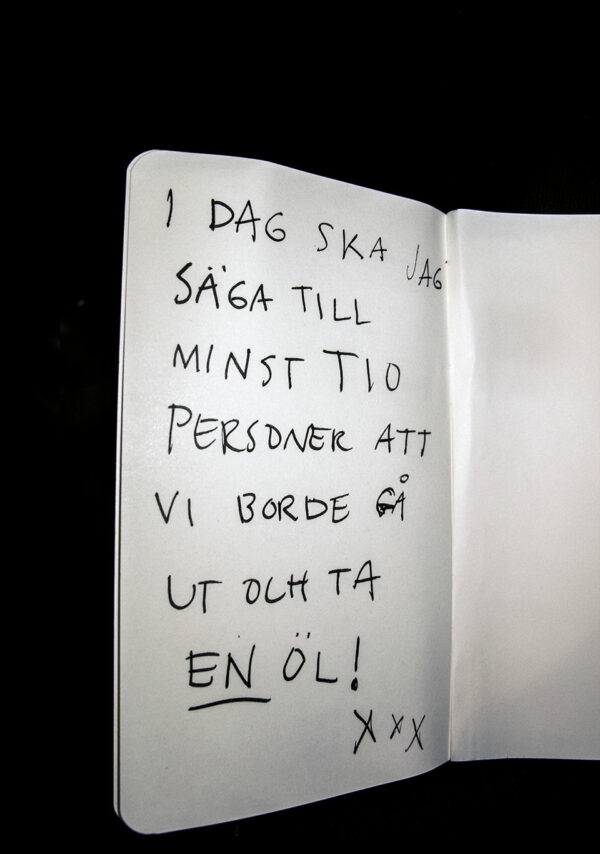 I DAG SKA JAG
SÄGA TILL
MINST TIO
PERSONER ATT
VI BORDE GÅ
UT OCH TA
EN ÖL!
XXX